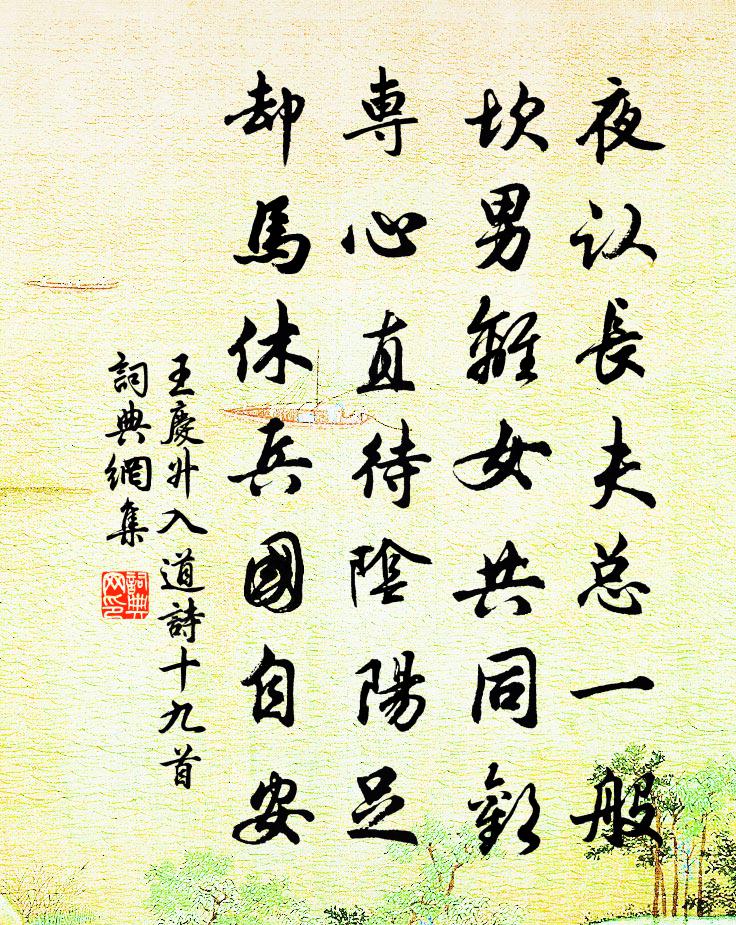 夜认長夫总一般
坎男離女共同歡
専心直待陰陽足
却馬休兵國自安
王慶升入道詩十九首
詞典網集
詞典
网印